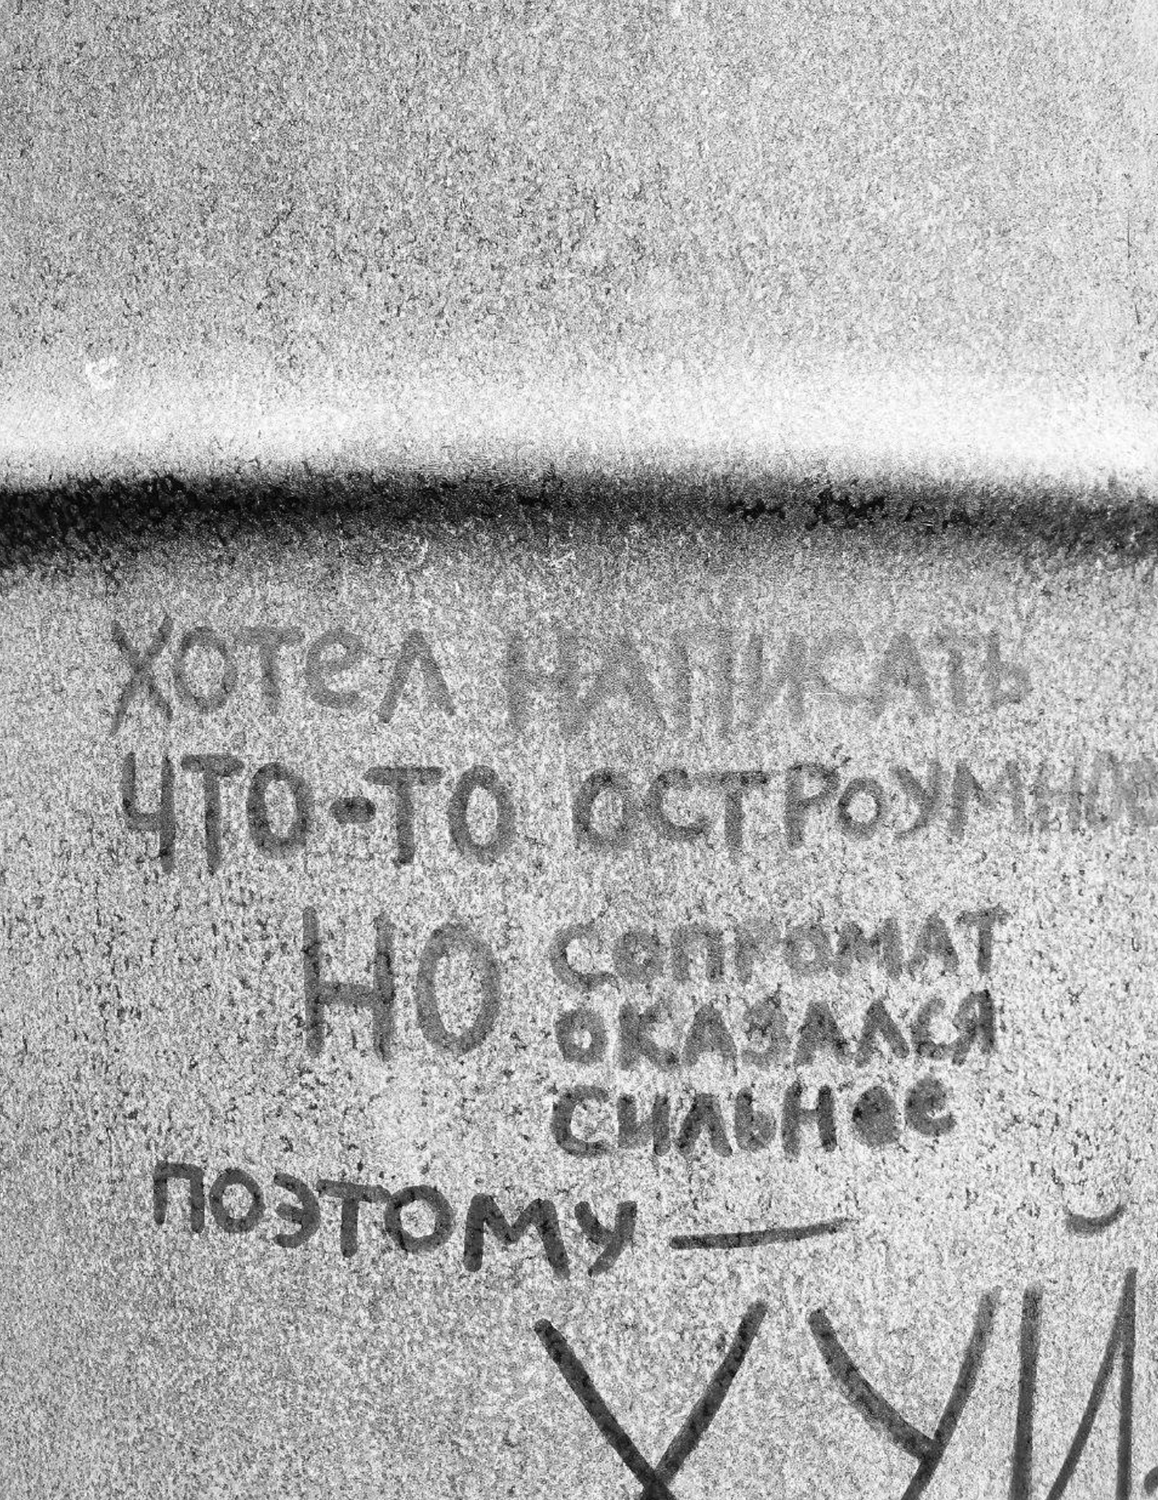 ХОТЕЛ НАПИСАТЬ
ЧТО-ТО ОСТРОУМНОЕ
НО СОПРОМАТ
ОКАЗАЛСЯ
СИЛЬНЕЕ
ПОЭТОМУ —
ХУЙ.